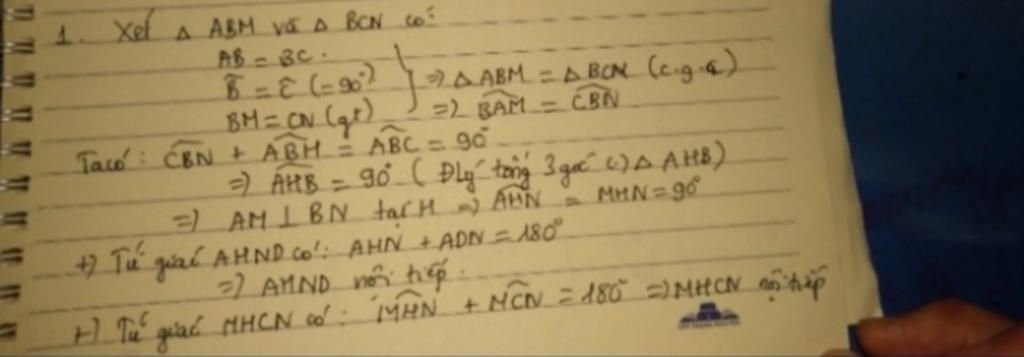 1. Xét △ ABM và △ BCN có:
AB = BC.
B̂ = Ĉ (=90°) => △ ABM = △ BCN (c.g.c)
BM = CN (gt) => BAM = CBN
Ta có: CBN + ABH = ABC = 90°
=> AHB = 90° (Đlý tổng 3 góc (.) △ AHB)
=> AM ⊥ BN tại H => AHN = MHN = 90°
+) Tứ giác AHND có: AHN + ADN = 180°
=> AHND nội tiếp.
+) Tứ giác MHCN có: MHN + MCN = 180° => MHCN nội tiếp